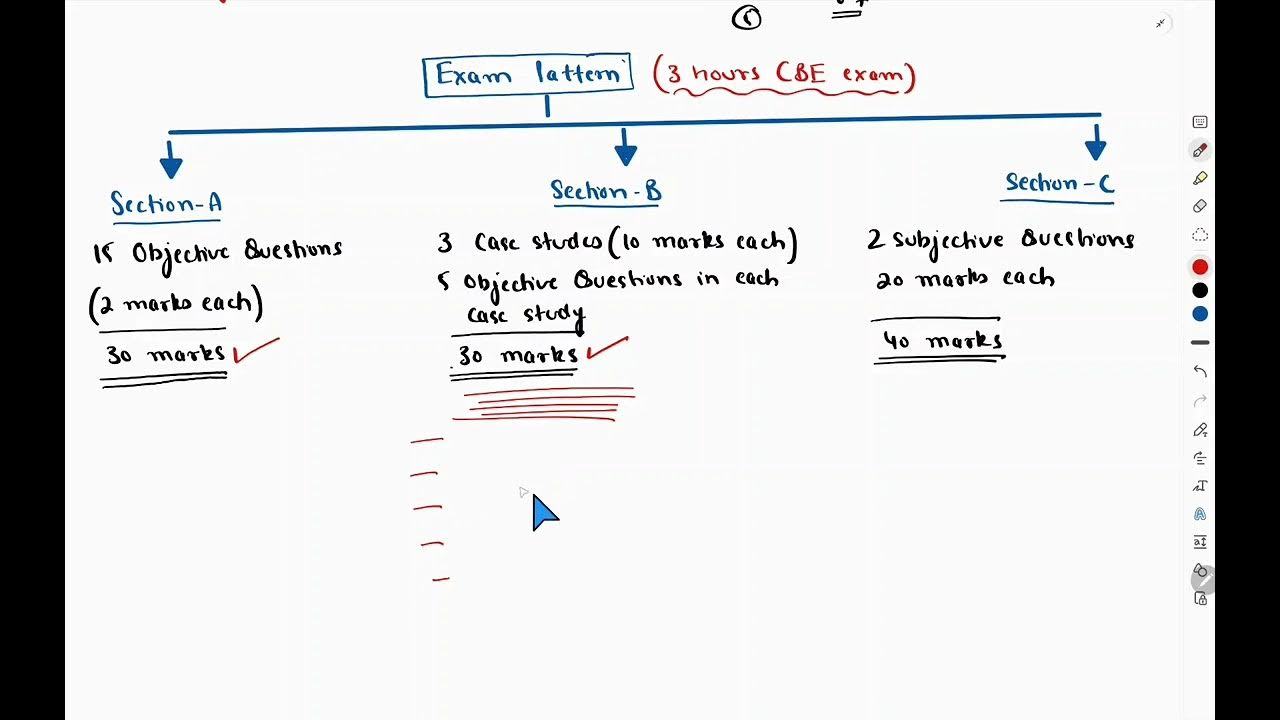 Exam Pattern (3 hours CBE exam)
Section-A
15 Objective Questions
(2 marks each)
30 marks
Section-B
3 Case studes (10 marks each)
5 Objective Questions in each
case study
30 marks
Section-C
2 Subjective Questions
20 marks each
40 marks